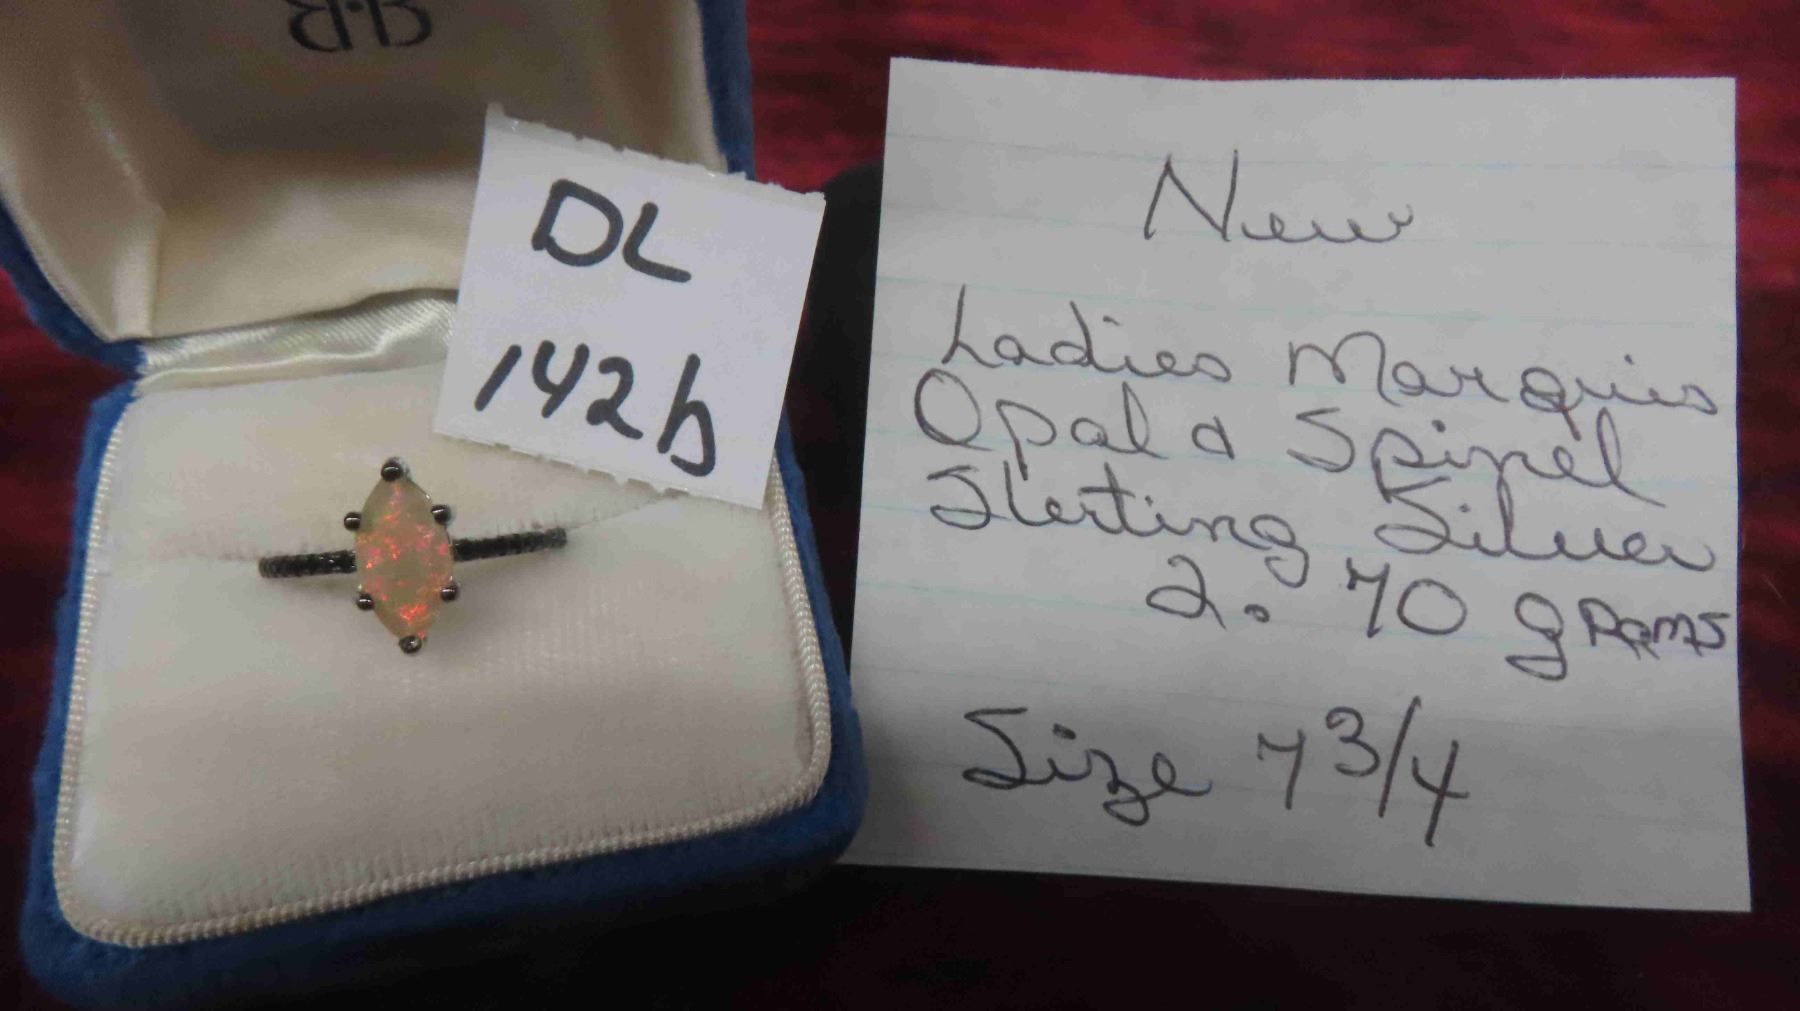 DL
142b
New
Ladies Marquis
Opal & Spinel
Sterling Silver
2.70 grams
Size 7 3/4